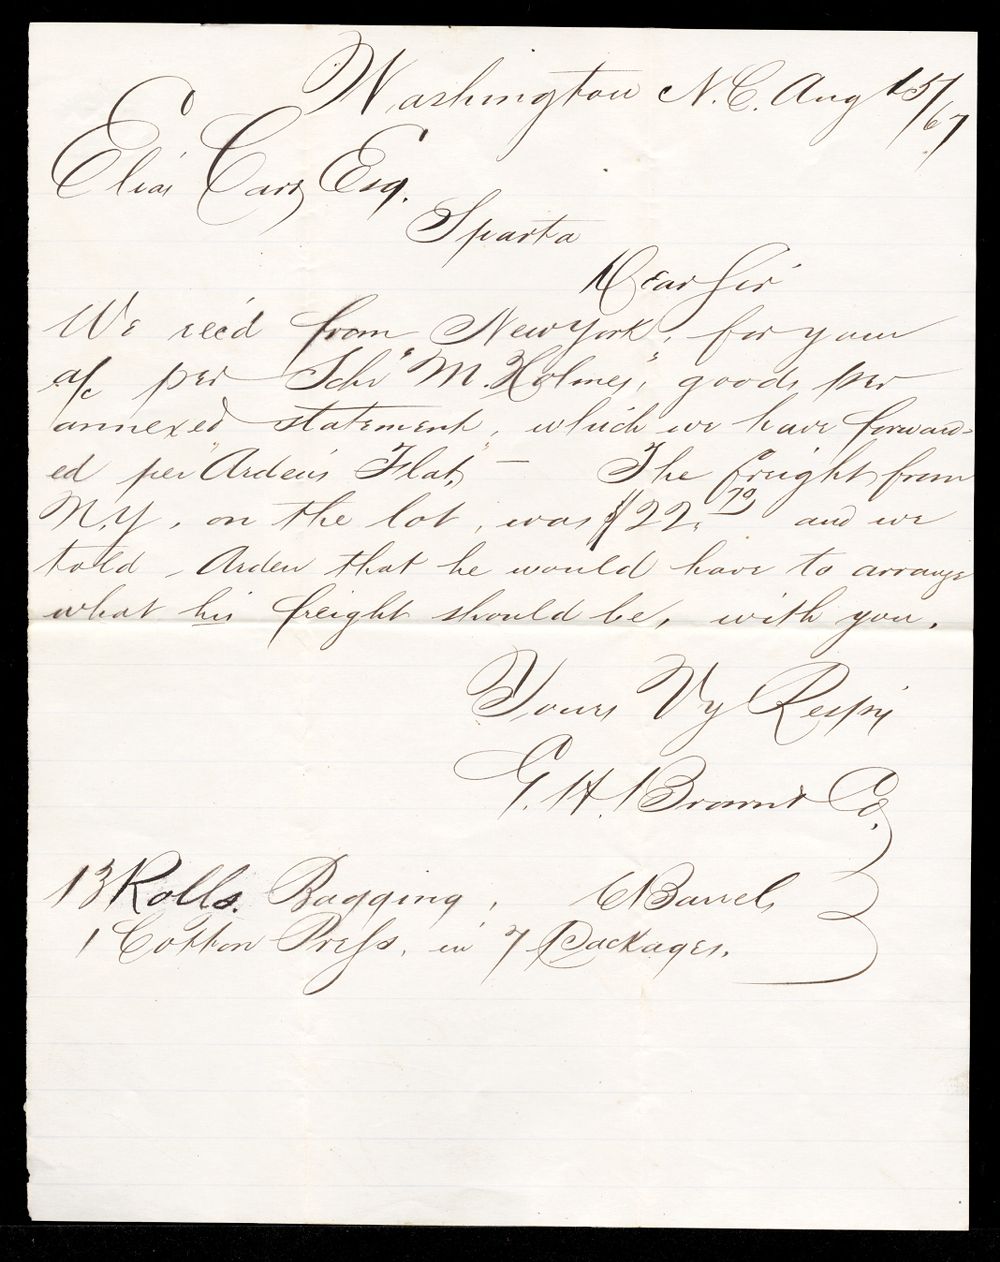 Washington N.C. Aug 15/67
Elias Carr Esq.
Sparta
Dear Sir
We rec'd from New York, for your
a/c per Schr "M. Holmes," goods per
annexed statement, which we have forward=
ed per "Arden's Flat," — The freight from
N.Y., on the lot, was $22.70 and we
told Arden that he would have to arrange
what his freight should be, with you.
Yours Vy Respy
G. H. Brown & Co.
13 Rolls. Bagging, 6 Barrels
1 Cotton Press, in 7 Packages.